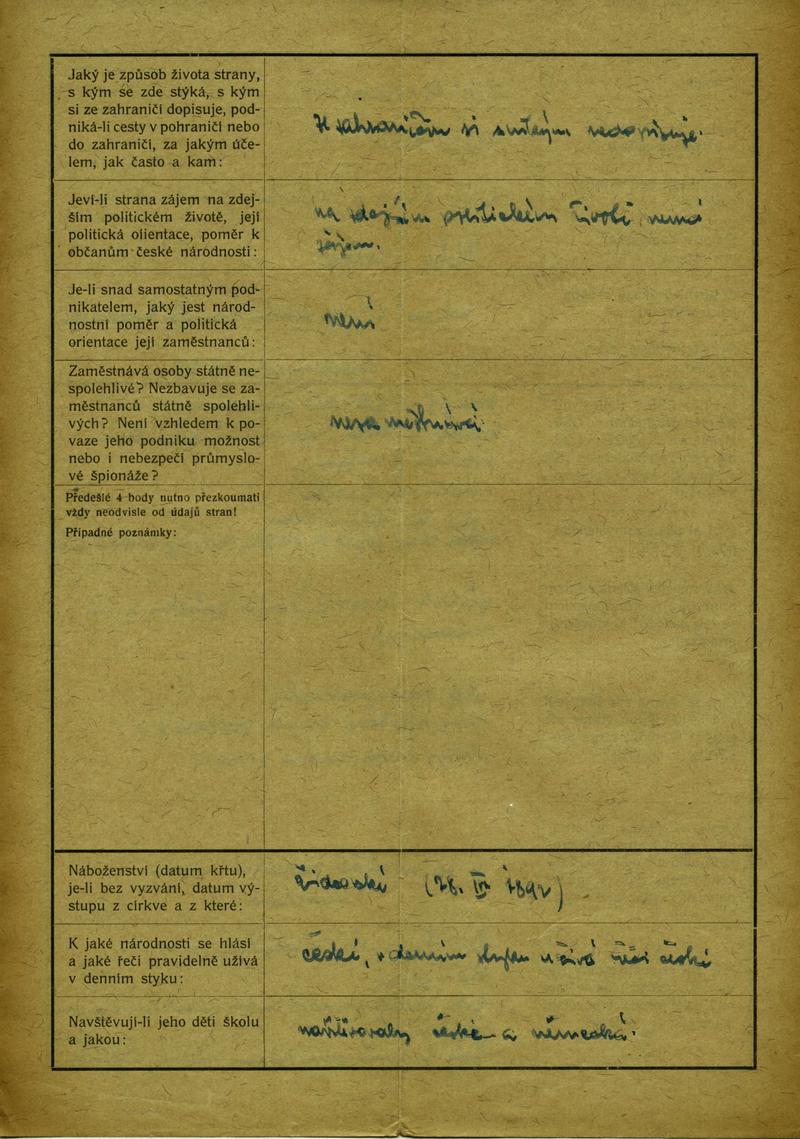 Jaký je způsob života strany,
s kým se zde stýká, s kým
si ze zahraničí dopisuje, pod-
niká-li cesty v pohraničí nebo
do zahraničí, za jakým úče-
lem, jak často a kam:
nedopisuje.
Jeví-li strana zájem na zdej-
ším politickém životě, její
politická orientace, poměr k
občanům české národnosti:
na zdejším politickém životě nemá
zájem.
Je-li snad samostatným pod-
nikatelem, jaký jest národ-
nostní poměr a politická
orientace její zaměstnanců:
není
Zaměstnává osoby státně ne-
spolehlivé? Nezbavuje se za-
městnanců státně spolehli-
vých? Není vzhledem k po-
vaze jeho podniku možnost
nebo i nebezpečí průmyslo-
vé špionáže?
nezaměstnává
Předešlé 4 body nutno přezkoumati
vždy neodvisle od údajů stran!
Případné poznámky:
Náboženství (datum křtu),
je-li bez vyzvání, datum vý-
stupu z církve a z které:
židovské
K jaké národnosti se hlásí
a jaké řeči pravidelně užívá
v denním styku:
české, v denním styku užívá řeči české
Navštěvují-li jeho děti školu
a jakou:
navštěvovaly české a německé.